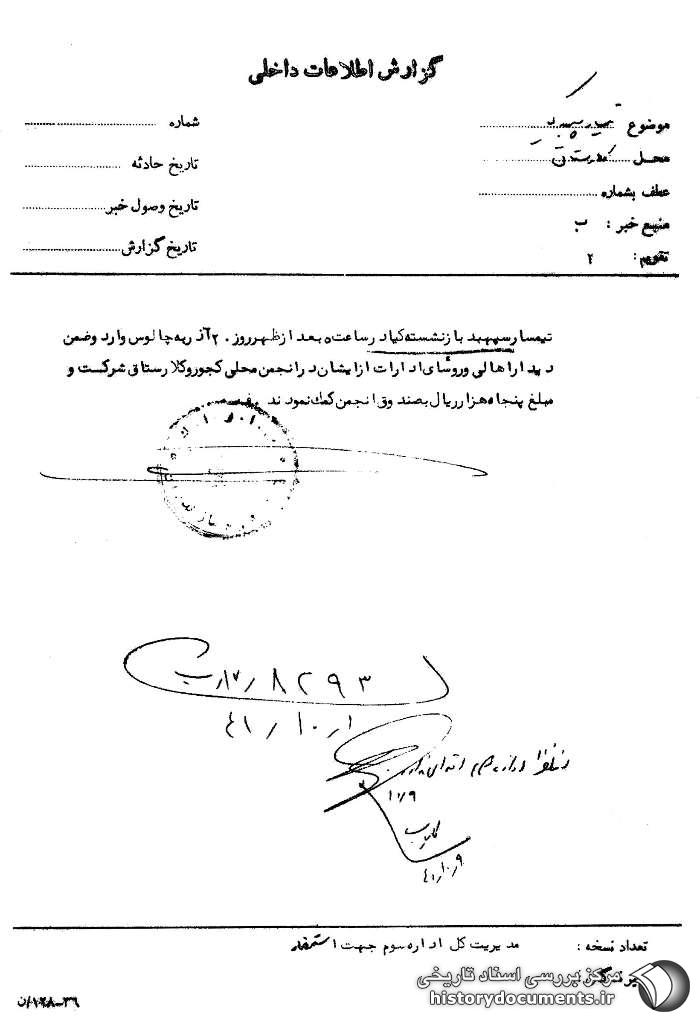 گزارش اطلاعات داخلی
موضوع
محل
عطف بشماره
منبع خبر : ب
تقویم : ۲
شماره
تاریخ حادثه
تاریخ وصول خبر
تاریخ گزارش
تیمسار سپهبد بازنشسته کیا در ساعت ۵ بعد از ظهر روز ۲۰ آذر به چالوس وارد و ضمن
دیدار اهالی و روسای ادارات از ایشان در انجمن محلی کجور و کلارستاق شرکت و
مبلغ پنجاه هزار ریال بصندوق انجمن کمک نمودند
۸۲۹۳
۴۱/۱۰/۱
۱۰/۹
۴۱/۱۰/۹
تعداد نسخه :
مدیریت کل اداره سوم جهت استحضار
۳۶-۱۲۸/ن
مرکز بررسی اسناد تاریخی
historydocuments.ir